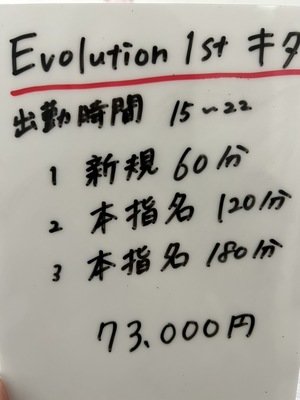 Evolution 1st キタ
出勤時間 15~22
1 新規 60分
2 本指名 120分
3 本指名 180分
73,000円